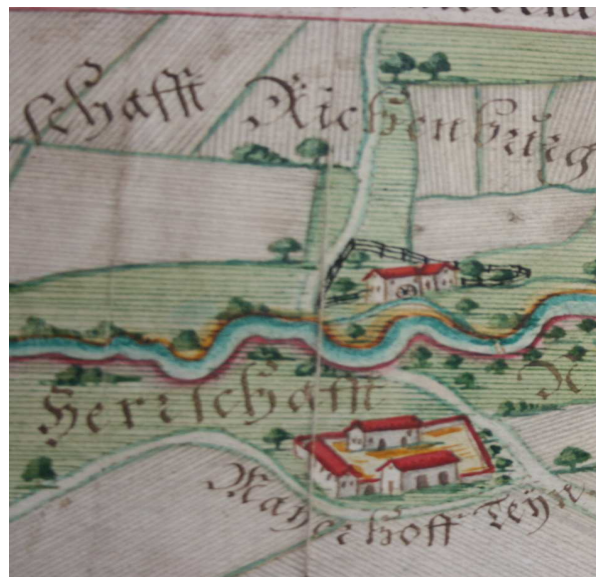 schafft Richenburg
Herrschafft
Mayerhoff Teyn